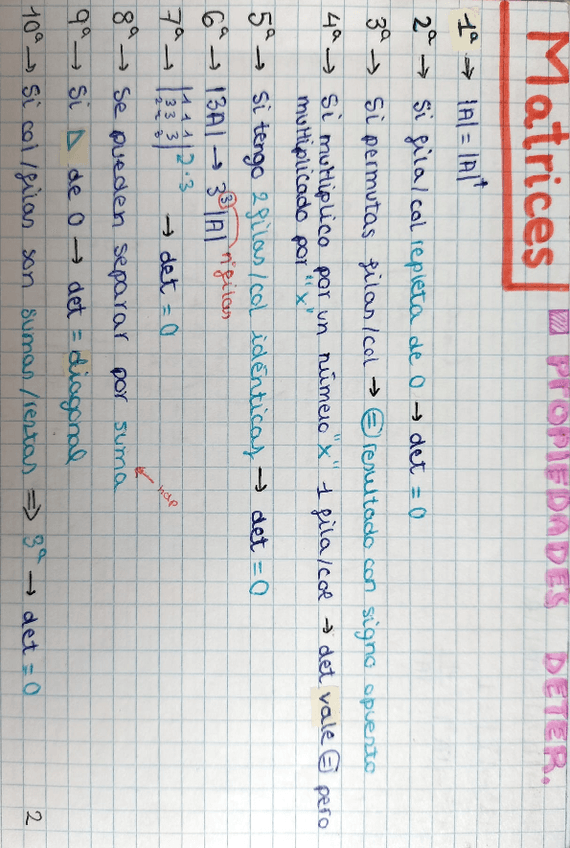 Matrices
PROPIEDADES DETER.
1ª → |A| = |A|ᵗ
2ª → Si fila/col repleta de 0 → det = 0
3ª → Si permutas filas/col → (=) resultado con signo opuesto
4ª → Si multiplico por un número "x" 1 fila/col → det vale (=) pero
multiplicado por "x"
5ª → Si tengo 2 filas/col idénticas → det = 0
6ª → |3A| → 3³|A|
nº filas
7ª → → det = 0
8ª → Se pueden separar por suma
9ª → Si △ de 0 → det = diagonal
10ª → Si col/filas son sumas/restas ⇒ 3ª → det = 0
2